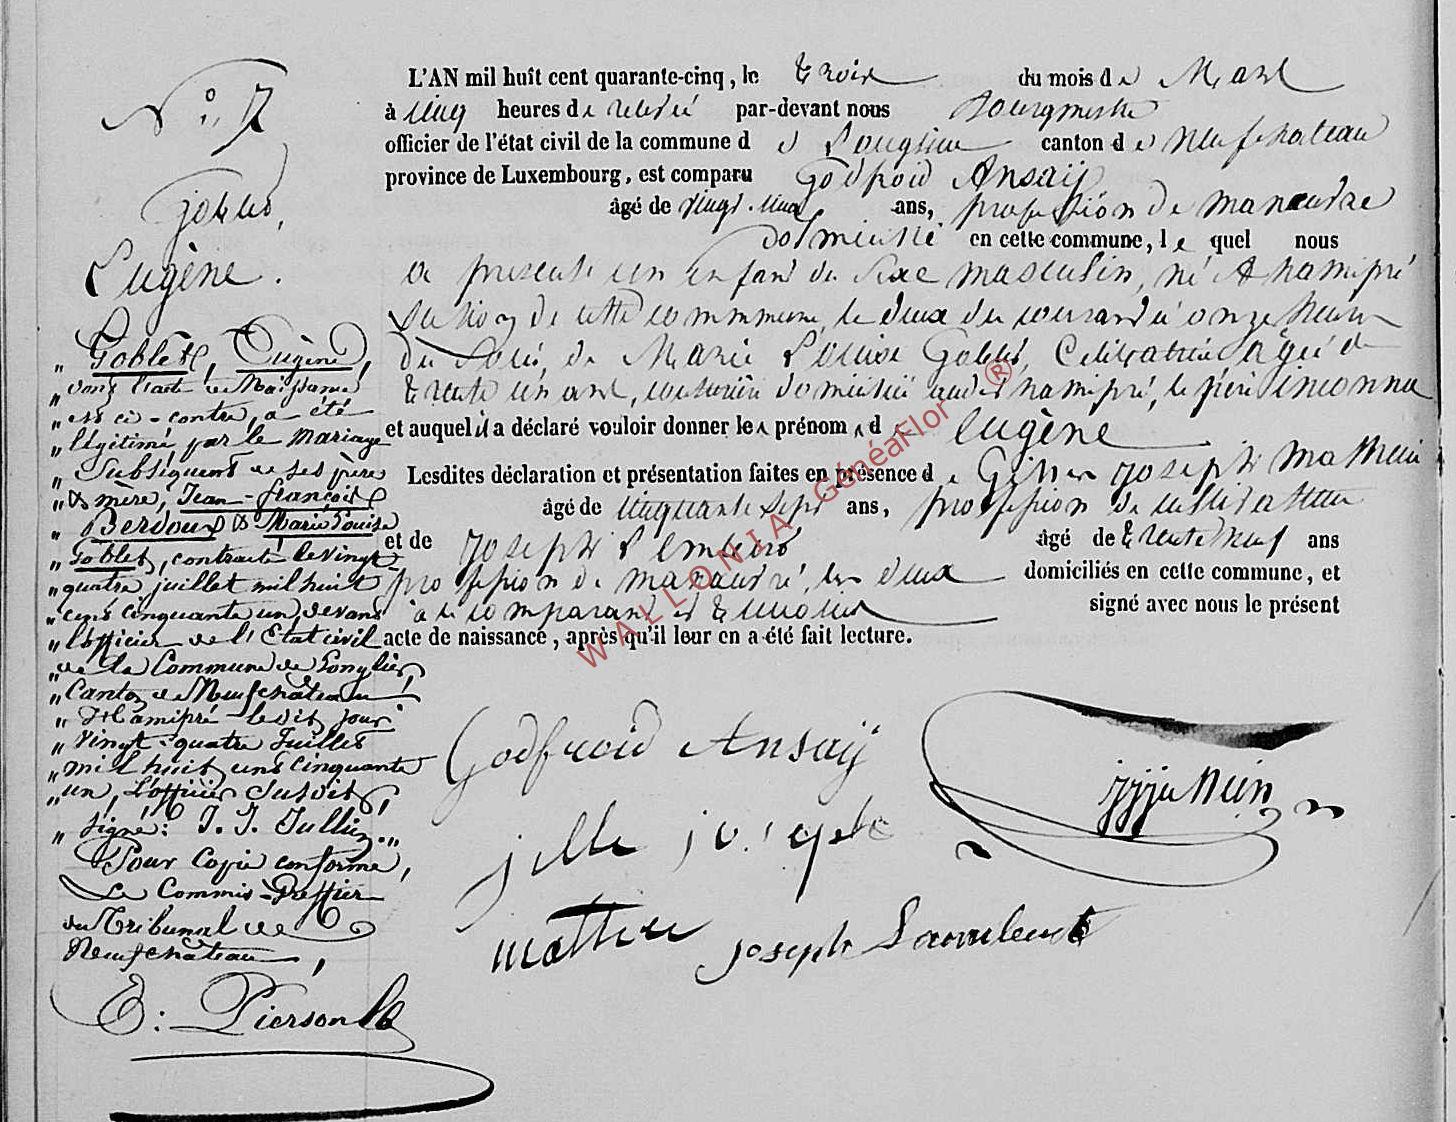 N° 7
Goblet,
Eugène.
" Goblet, Eugène,
" dans l'acte de Naissance
" est ci-contre, a été
" légitimé par le mariage
" Subséquent de ses père
" & mère, Jean-françois
" Berdoux & Marie Louise
" Goblet, contracté le vingt
" quatre juillet mil huit
" cent cinquante un, devant
" l'officier de l'Etat civil
" de la Commune de Longlier,
" Canton de Neufchâteau,
" Hamipré ledit jour
" Vingt-quatre Juillet
" mil huit cent cinquante
" un, L'officier Susdit,
" Signé: J. J. Jullien."
Pour Copie conforme,
Le Commis-Greffier
du Tribunal de
Neufchâteau,
E: Pierson
L'AN mil huit cent quarante-cinq, le trois du mois de Mars
à cinq heures de relevée par-devant nous Bourgmestre
officier de l'état civil de la commune de Longlier canton de Neufchateau
province de Luxembourg, est comparu Godfroid Ansay
âgé de vingt-cinq ans, profession de manœuvre
domicilié en cette commune, lequel nous
a présenté un enfant du sexe masculin, né à hamipré
section de cette commune, le deux du courant à onze heures
du soir, de Marie Louise Goblet, Célibataire âgée de
trente un ans, couturière domiciliée audit hamipré, le père inconnu
et auquel il a déclaré vouloir donner le prénom de Eugène
Lesdites déclaration et présentation faites en présence de Gilles joseph Mathieu
âgé de cinquante sept ans, profession de cultivateur
et de joseph Lambert âgé de trente neuf ans
profession de manœuvre, les deux domiciliés en cette commune, et
comparant et témoins signé avec nous le présent
acte de naissance, après qu'il leur en a été fait lecture.
Godfroid Ansay
jjjullien
jille joseph
mathieu joseph
WALLONIA GénéaFlor ®